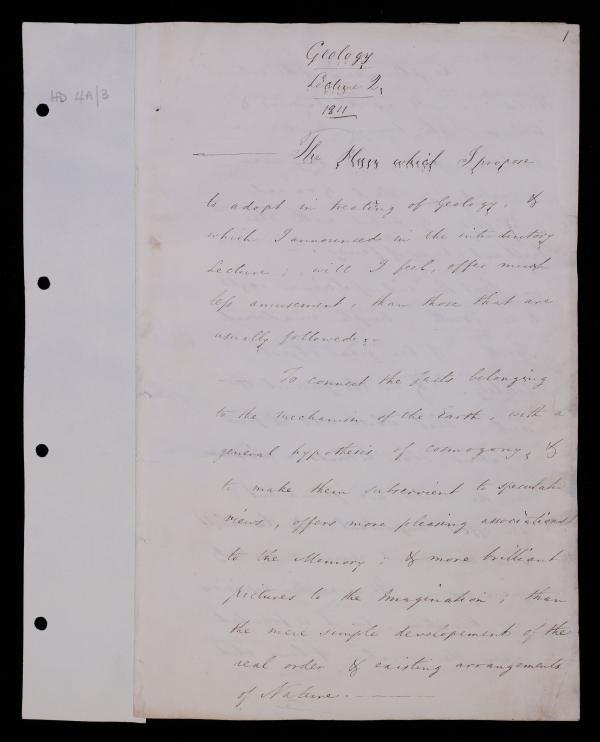 1
HD 4A/3
Geology
Lecture 2.
1811
The Plan which I propose
to adopt in treating of Geology, &
which I announced in the introductory
Lecture; will I feel, offer much
less amusement, than those that are
usually followed:-
To connect the facts belonging
to the mechanism of the Earth, with a
general hypothesis of cosmogony, &
to make them subservient to speculative
views, offers more pleasing associations
to the Memory; & more brilliant
pictures to the Imagination; than
the mere simple developement of the
real order & existing arrangements
of Nature.